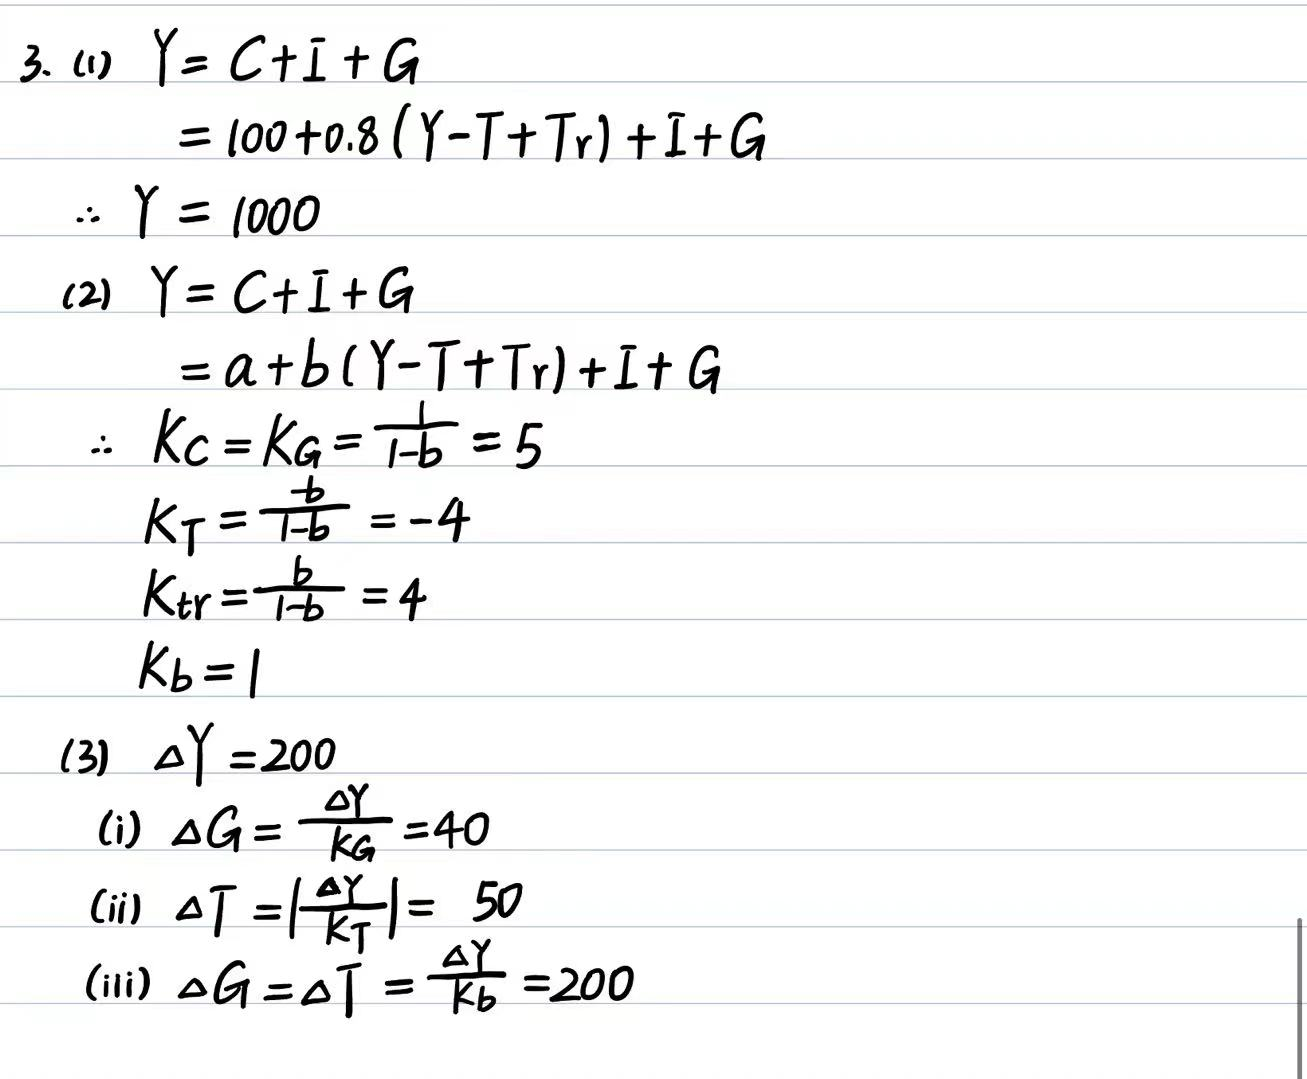 3. (1) Y = C+I+G
= 100+0.8(Y-T+Tr)+I+G
∴ Y = 1000
(2) Y = C+I+G
= a+b(Y-T+Tr)+I+G
∴ Kc = KG = 1/(1-b) = 5
KT = -b/(1-b) = -4
Ktr = b/(1-b) = 4
Kb = 1
(3) △Y = 200
(i) △G = △Y/KG = 40
(ii) △T = |△Y/KT| = 50
(iii) △G = △T = △Y/Kb = 200